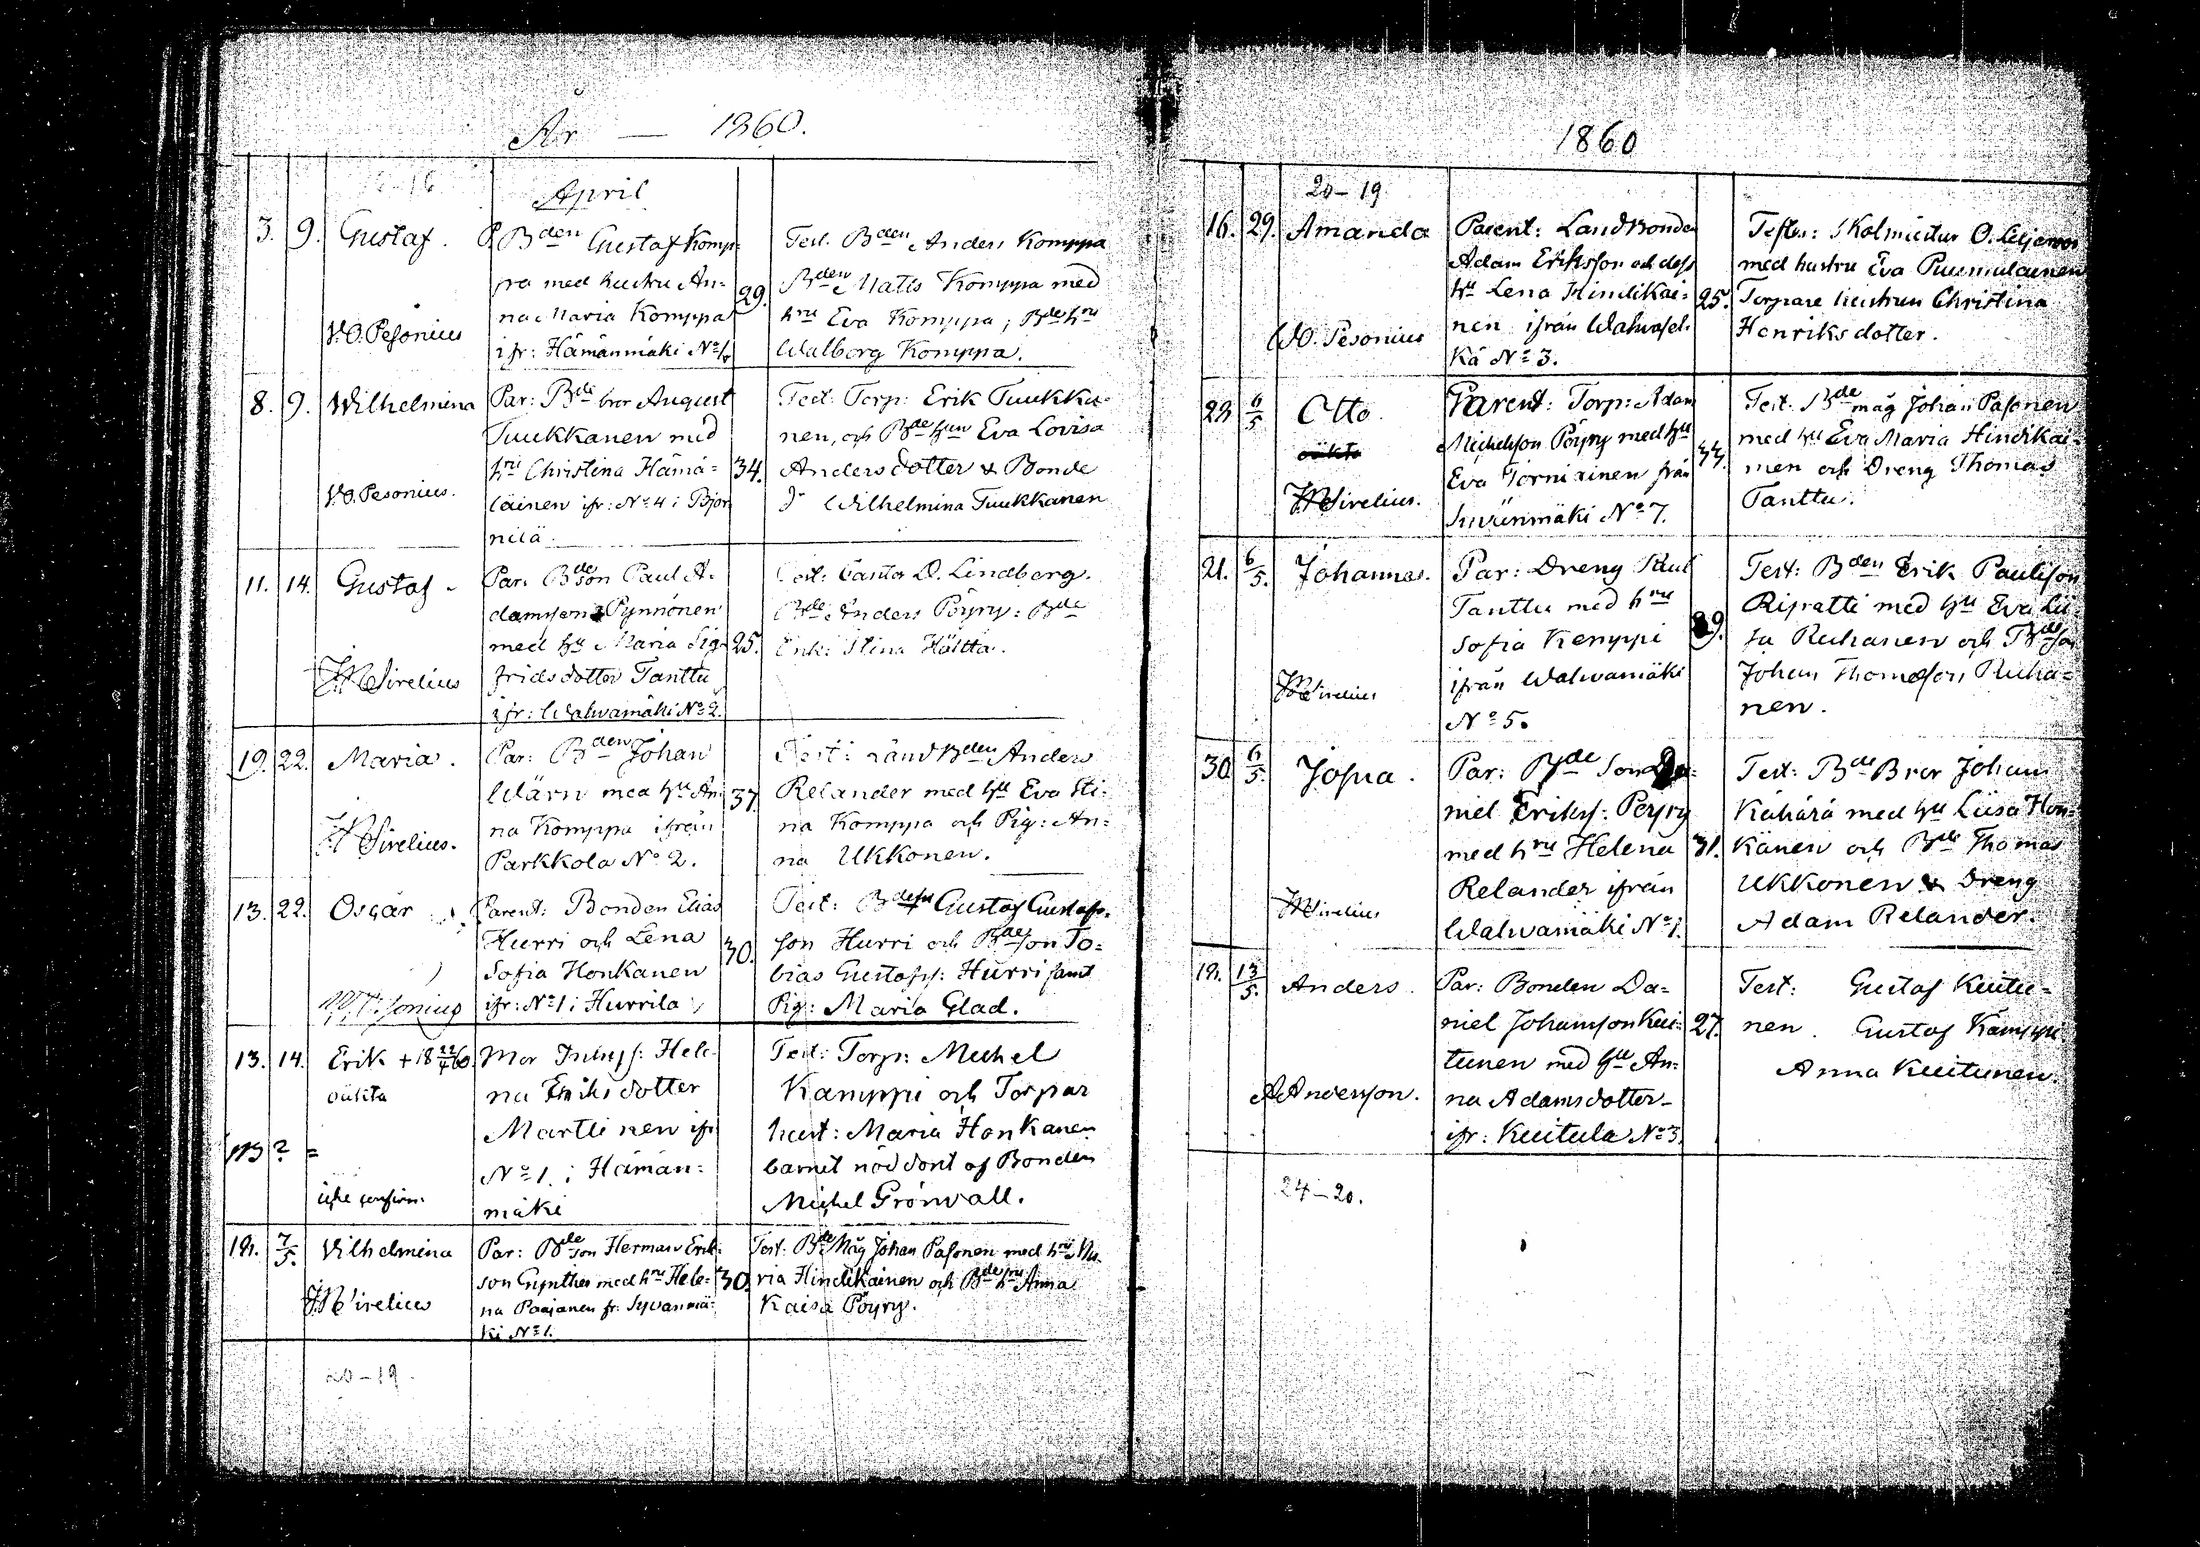 År — 1860.
April
3. 9. Gustaf. Bden Gustaf Komp-
pa med hustru An-
na Maria Komppa
ifr: Hämänmäki No
29.
V.O. Pesonius
Test. Bden Anders Komppa
Bden Matts Komppa med
hru Eva Komppa; Bde hru
Walborg Komppa.
8. 9. Wilhelmina
V.O. Pesonius.
Par: Bde bror August
Tuukkanen med
hru Christina Hämä=
läinen ifr: No 4 i Björ
nilä.
34.
Test: Torp: Erik Tuukka-
nen, och Bde Eva Lovisa
Andersdotter & Bonde
Wilhelmina Tuukkanen
11. 14. Gustaf.
Sirelius
Par: Bde son Paul A-
damsson Pynnönen
med Maria Sig-
fridsdotter Tanttu
ifr: Walvamäki No 2.
25.
Test: Cantor D. Lindberg.
Bde Anders Pöyry: Bde
Enk: Stina Hältta.
19. 22. Maria.
Sirelius.
Par: Bden Johan
Wärn med An-
na Komppa ifrån
Parkkola No 2.
37
Test: Land Bden Anders
Relander med Eva Sti-
na Komppa och Pig: An-
na Ukkonen.
13. 22. Oscar
Parent: Bonden Elias
Hurri och Lena
Sofia Honkanen
ifr: No 1 i Hurrila
30.
Test: Gustaf Gustafs-
son Hurri och Bde son To=
bias Gustafss: Hurri samt
Pig: Maria Glad.
13. 14. Erik + 18 22/4 60.
oäkta
NB ? =
Mor Hele-
na Eriksdotter
Martti nen ifr
No 1. i Hämän=
mäki
Test: Torp: Michel
Kamppi och Torpar
hust: Maria Honkanen
barnet nöd dopt af Bonden
Michel Grönvall.
19. 7/5. Vilhelmina
Sirelius
Par: Bde son Herman Erik-
son Gynther med hru Hele=
na Paajanen fr: Syvänmä-
ki No 1.
30.
Test: Bde Måg Johan Pasonen med hru Ma-
ria Hindikainen och Bde hru Anna
Kaisa Pöyry.
20-19
1860
20-19
16. 29. Amanda
V.O. Pesonius
Parent: Landbonden
Adam Eriksson och dess
hu Lena Hindikai=
nen ifrån Walvasel-
kä No 3.
25.
med hustru Eva Puumalainen
Torpare hustrun Christina
Henriksdotter.
6/5 Otto.
Sirelius.
Parent: Torp: Adam
Michelsson Pöyry med
Eva Torniainen från
No 7.
Test. Bde måg Johan Pasonen
med Eva Maria Hindikai=
nen och Dreng Thomas
Tanttu.
21. 6/5. Johannes.
Sirelius
Par: Dreng Paul
Tanttu med hru
Sofia Kemppi
ifrån Walvamäki
No 5.
Test: Bden Erik Paulsson
Ripatti med Eva Lii-
sa Ruhanen och Bde son
Johan Thomasson Ruha=
nen.
30. 6/5. Josua.
Sirelius
Par: Bde Son Da-
niel Eriks: Pöyry
med hru Helena
Relander ifrån
Walvamäki No 1.
31.
Test: Bde Bror Johan
Kähärä med Liisa Hon-
känen och Bde Thomas
Ukkonen & Dreng
Adam Relander.
19. 13/5. Anders.
A Andersson.
Par: Bonden Da=
niel Johansson Kui-
tunen med An-
na Adamsdotter
ifr: Kuitula No 3.
27.
Test: Gustaf Kuitu=
nen. Gustaf Kämppi
Anna Kuitunen.
24-20.